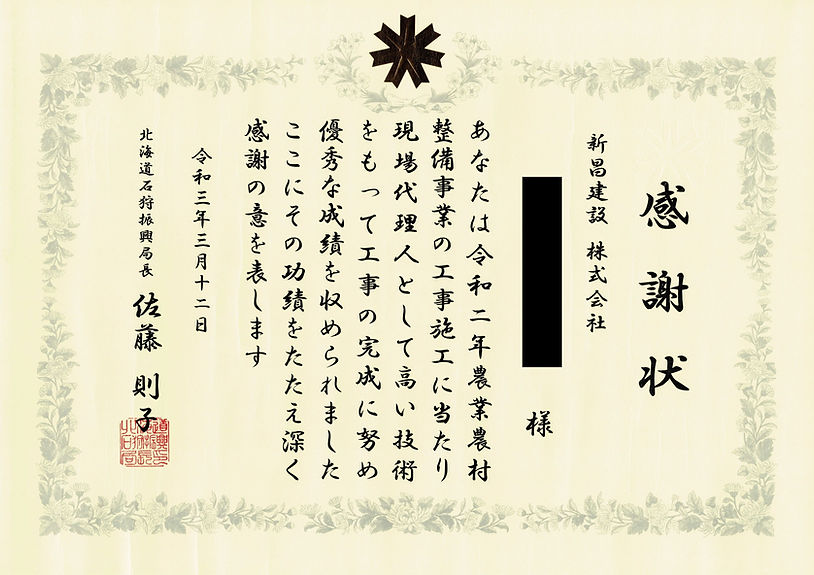 感謝状
新昌建設 株式会社
様
あなたは令和二年農業農村
整備事業の工事施工に当たり
現場代理人として高い技術
をもって工事の完成に努め
優秀な成績を収められました
ここにその功績をたたえ深く
感謝の意を表します
令和三年三月十二日
北海道石狩振興局長 佐藤 則子